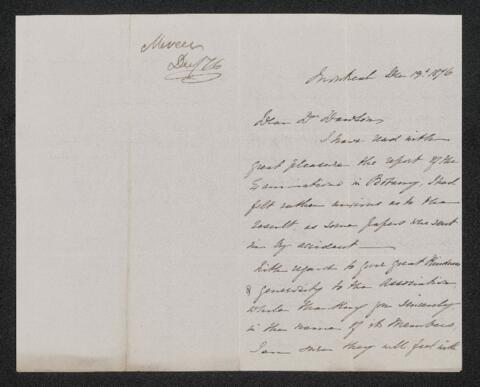 Mercer
Dec/76
Montreal Dec 19th 1876
Dear Dr Dawson
I have read with
great pleasure the report of the
Examinations in Botany, I had
felt rather anxious as to the
result, as some papers were sent
in by accident —
With regard to your great kindness
& generosity to the Association,
while thanking you sincerely
in the name of its members,
I am sure they will feel with